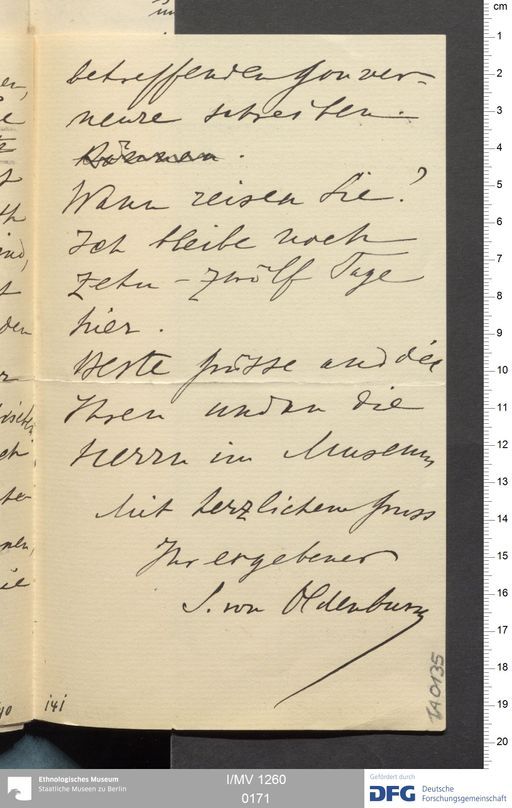 betreffenden Gouver-
neure schreiben.
können.
Wann reisen Sie?
Ich bleibe noch
zehn - zwölf Tage
hier.
Beste Grüsse and die
Ihren und an die
Herrn im Museum
Mit herzlichem Gruss
Ihr ergebener
S. von Oldenburg
141
TA0135
cm
1
2
3
4
5
6
7
8
9
10
11
12
13
14
15
16
17
18
19
20
Ethnologisches Museum
Staatliche Museen zu Berlin
I/MV 1260
0171
Gefördert durch
DFG Deutsche
Forschungsgemeinschaft